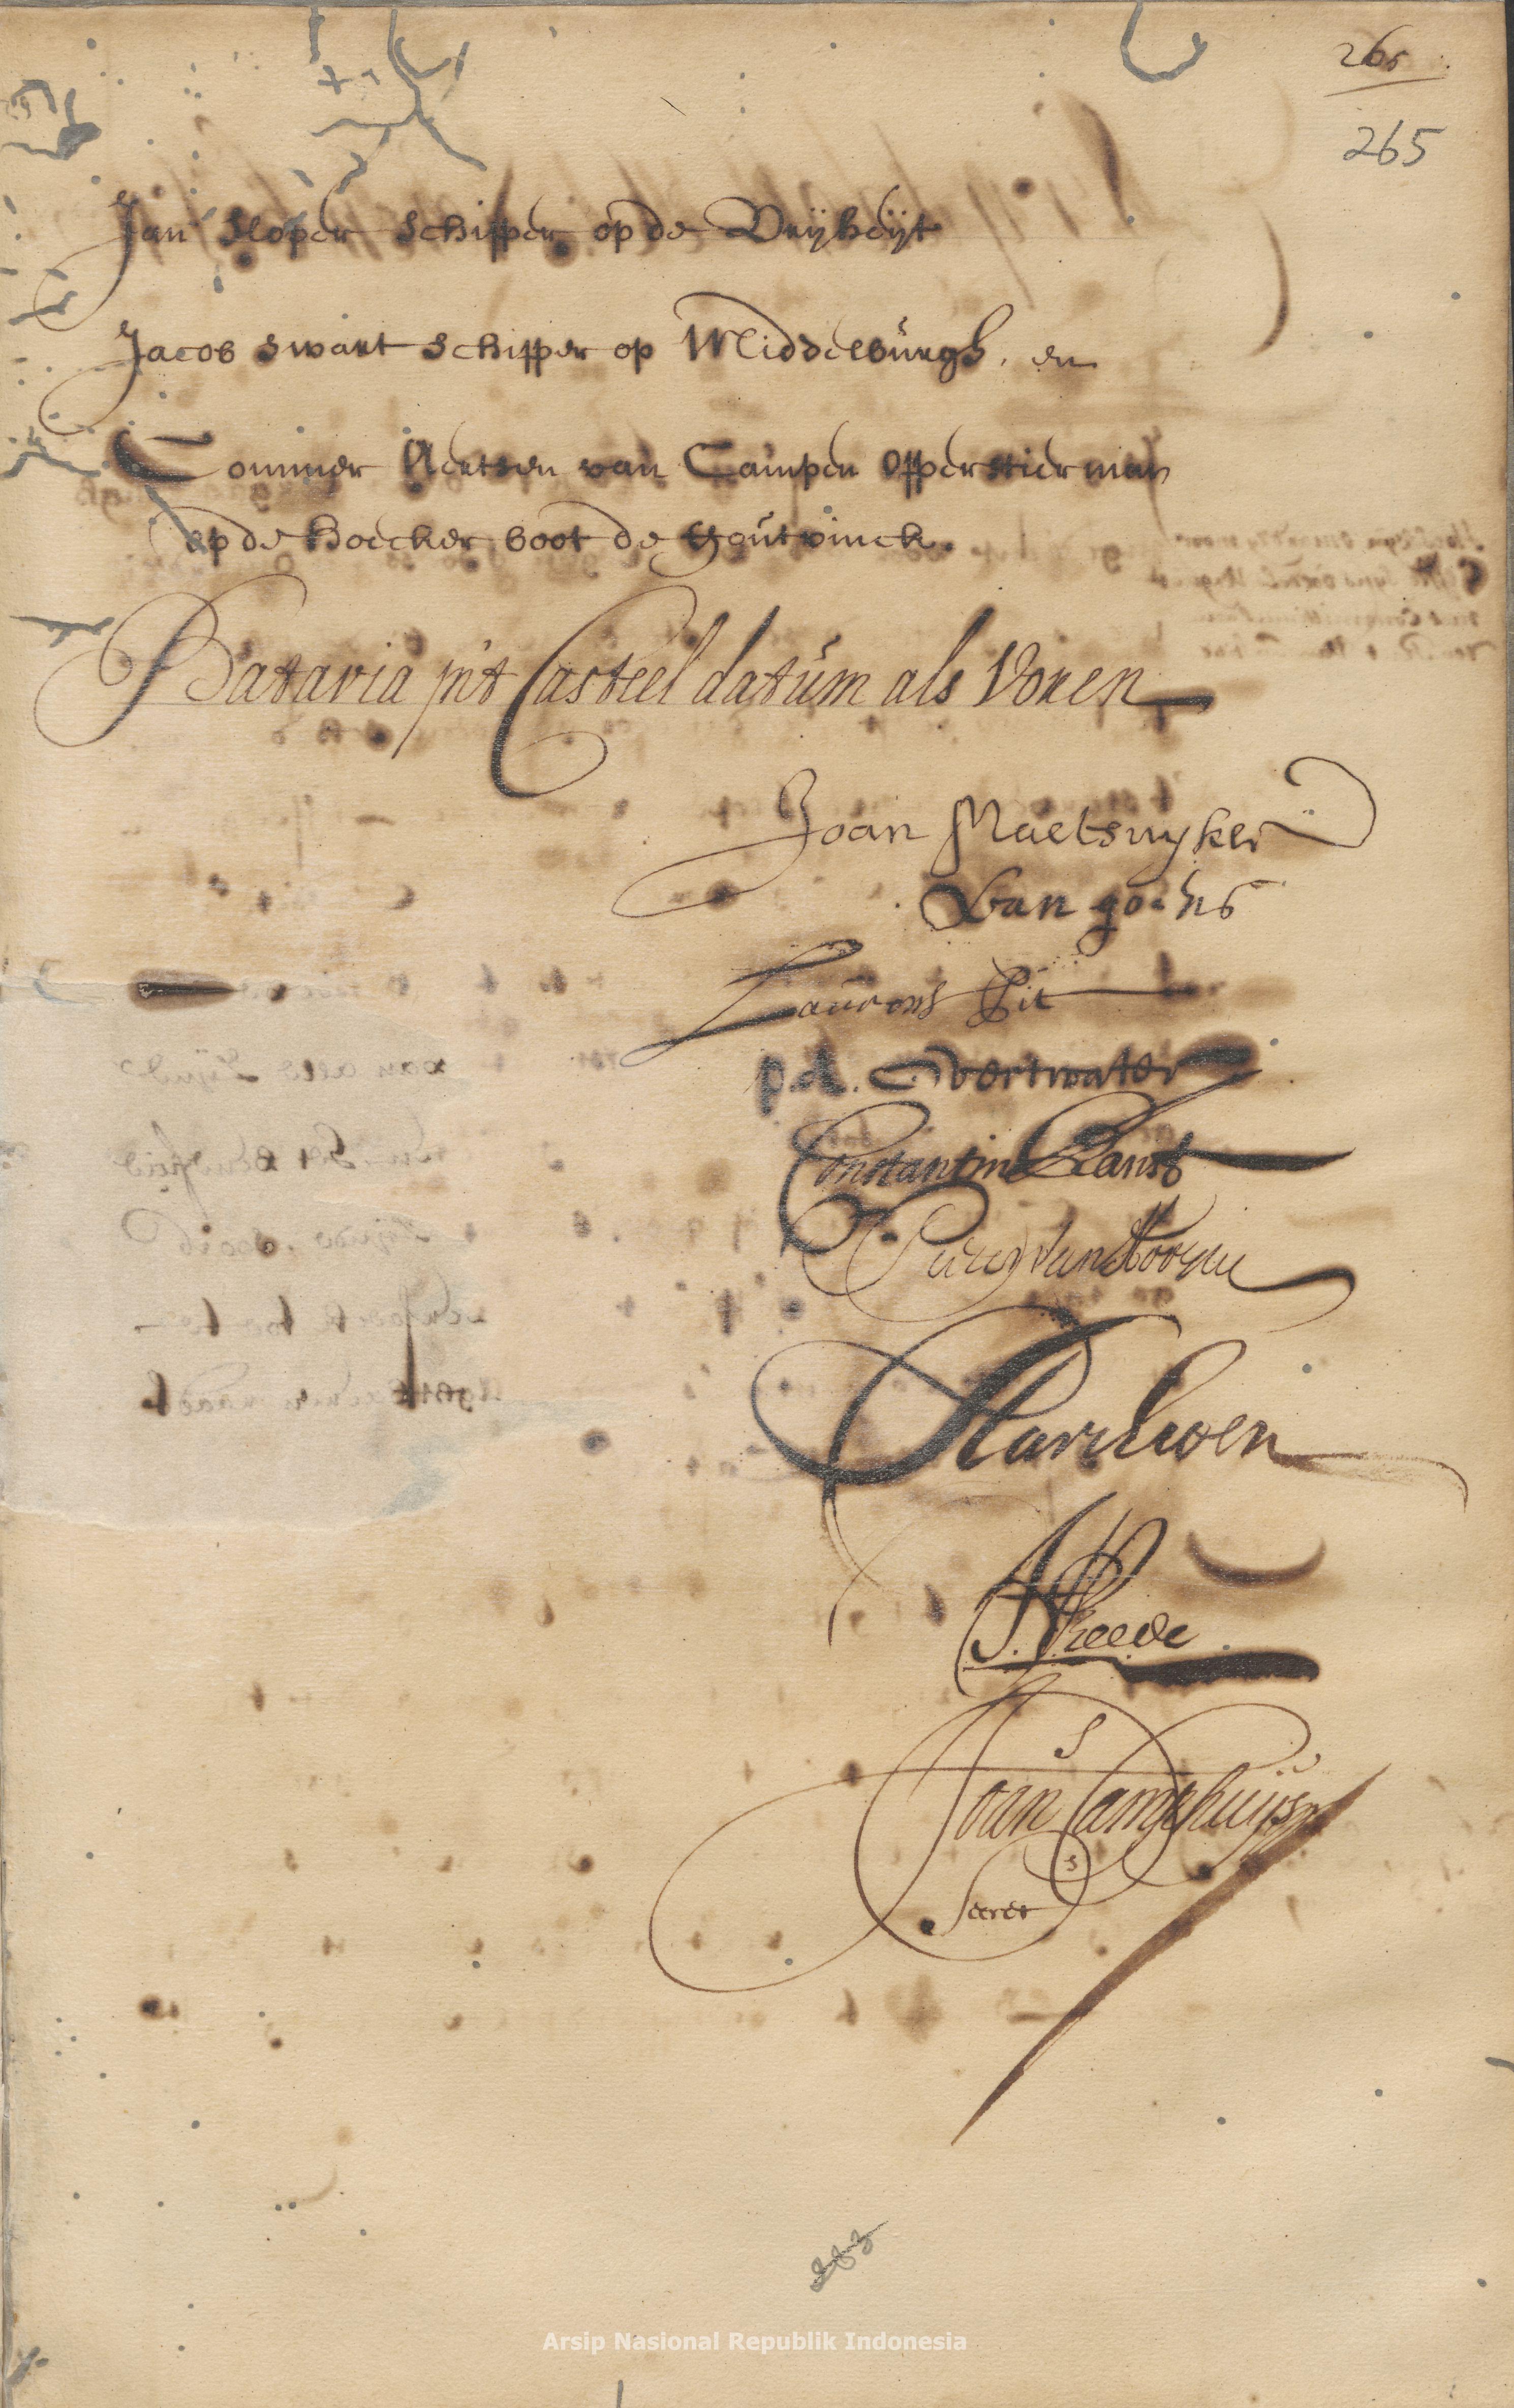 265
265
Jan Sloper Schipper op de Vrijheijt
Jacob Swart Schipper op Middelburgh, en
Commer Aertsen van Campen Opperstierman
op de hoecker boot de goutvinck.
Batavia in't Casteel datum als Voren
Joan Maetsuyker
Van goens
Laurens Pit
P. A. Overtwater
Constantin Ranst
Pieter van Hoorn
Hartzwen
Joan Camphuijs
Secret
Arsip Nasional Republik Indonesia